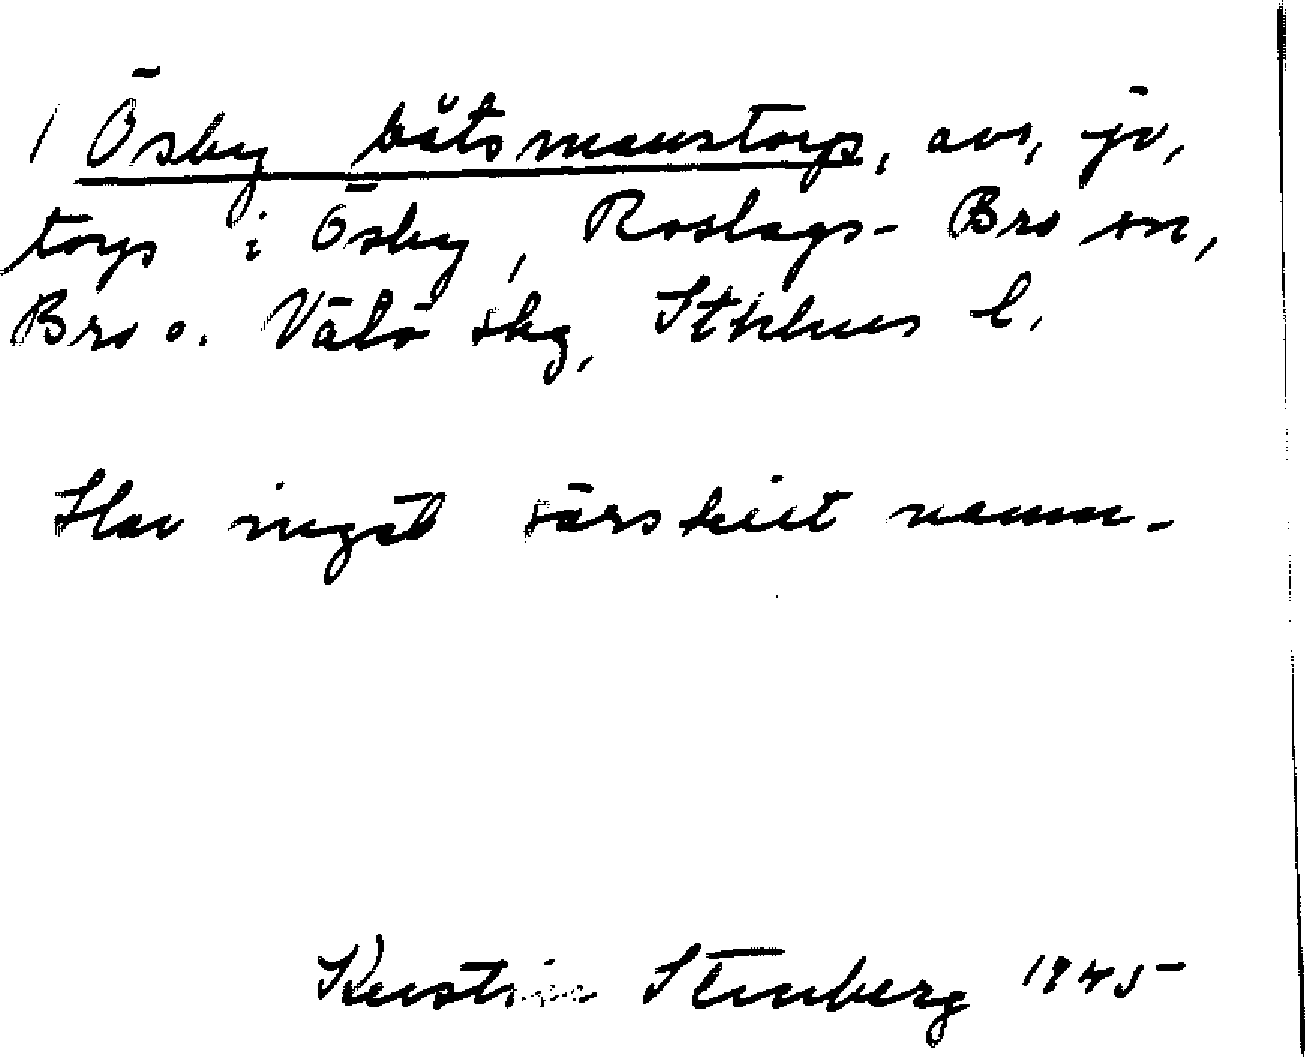 1 Ösby båtsmanstorp, avs, jv,
torp i Ösby, Roslags-Bro sn,
Bro o. Vätö skg, Sthlms l.
Har inget särskilt namn.
Kerstin Stenberg 1945